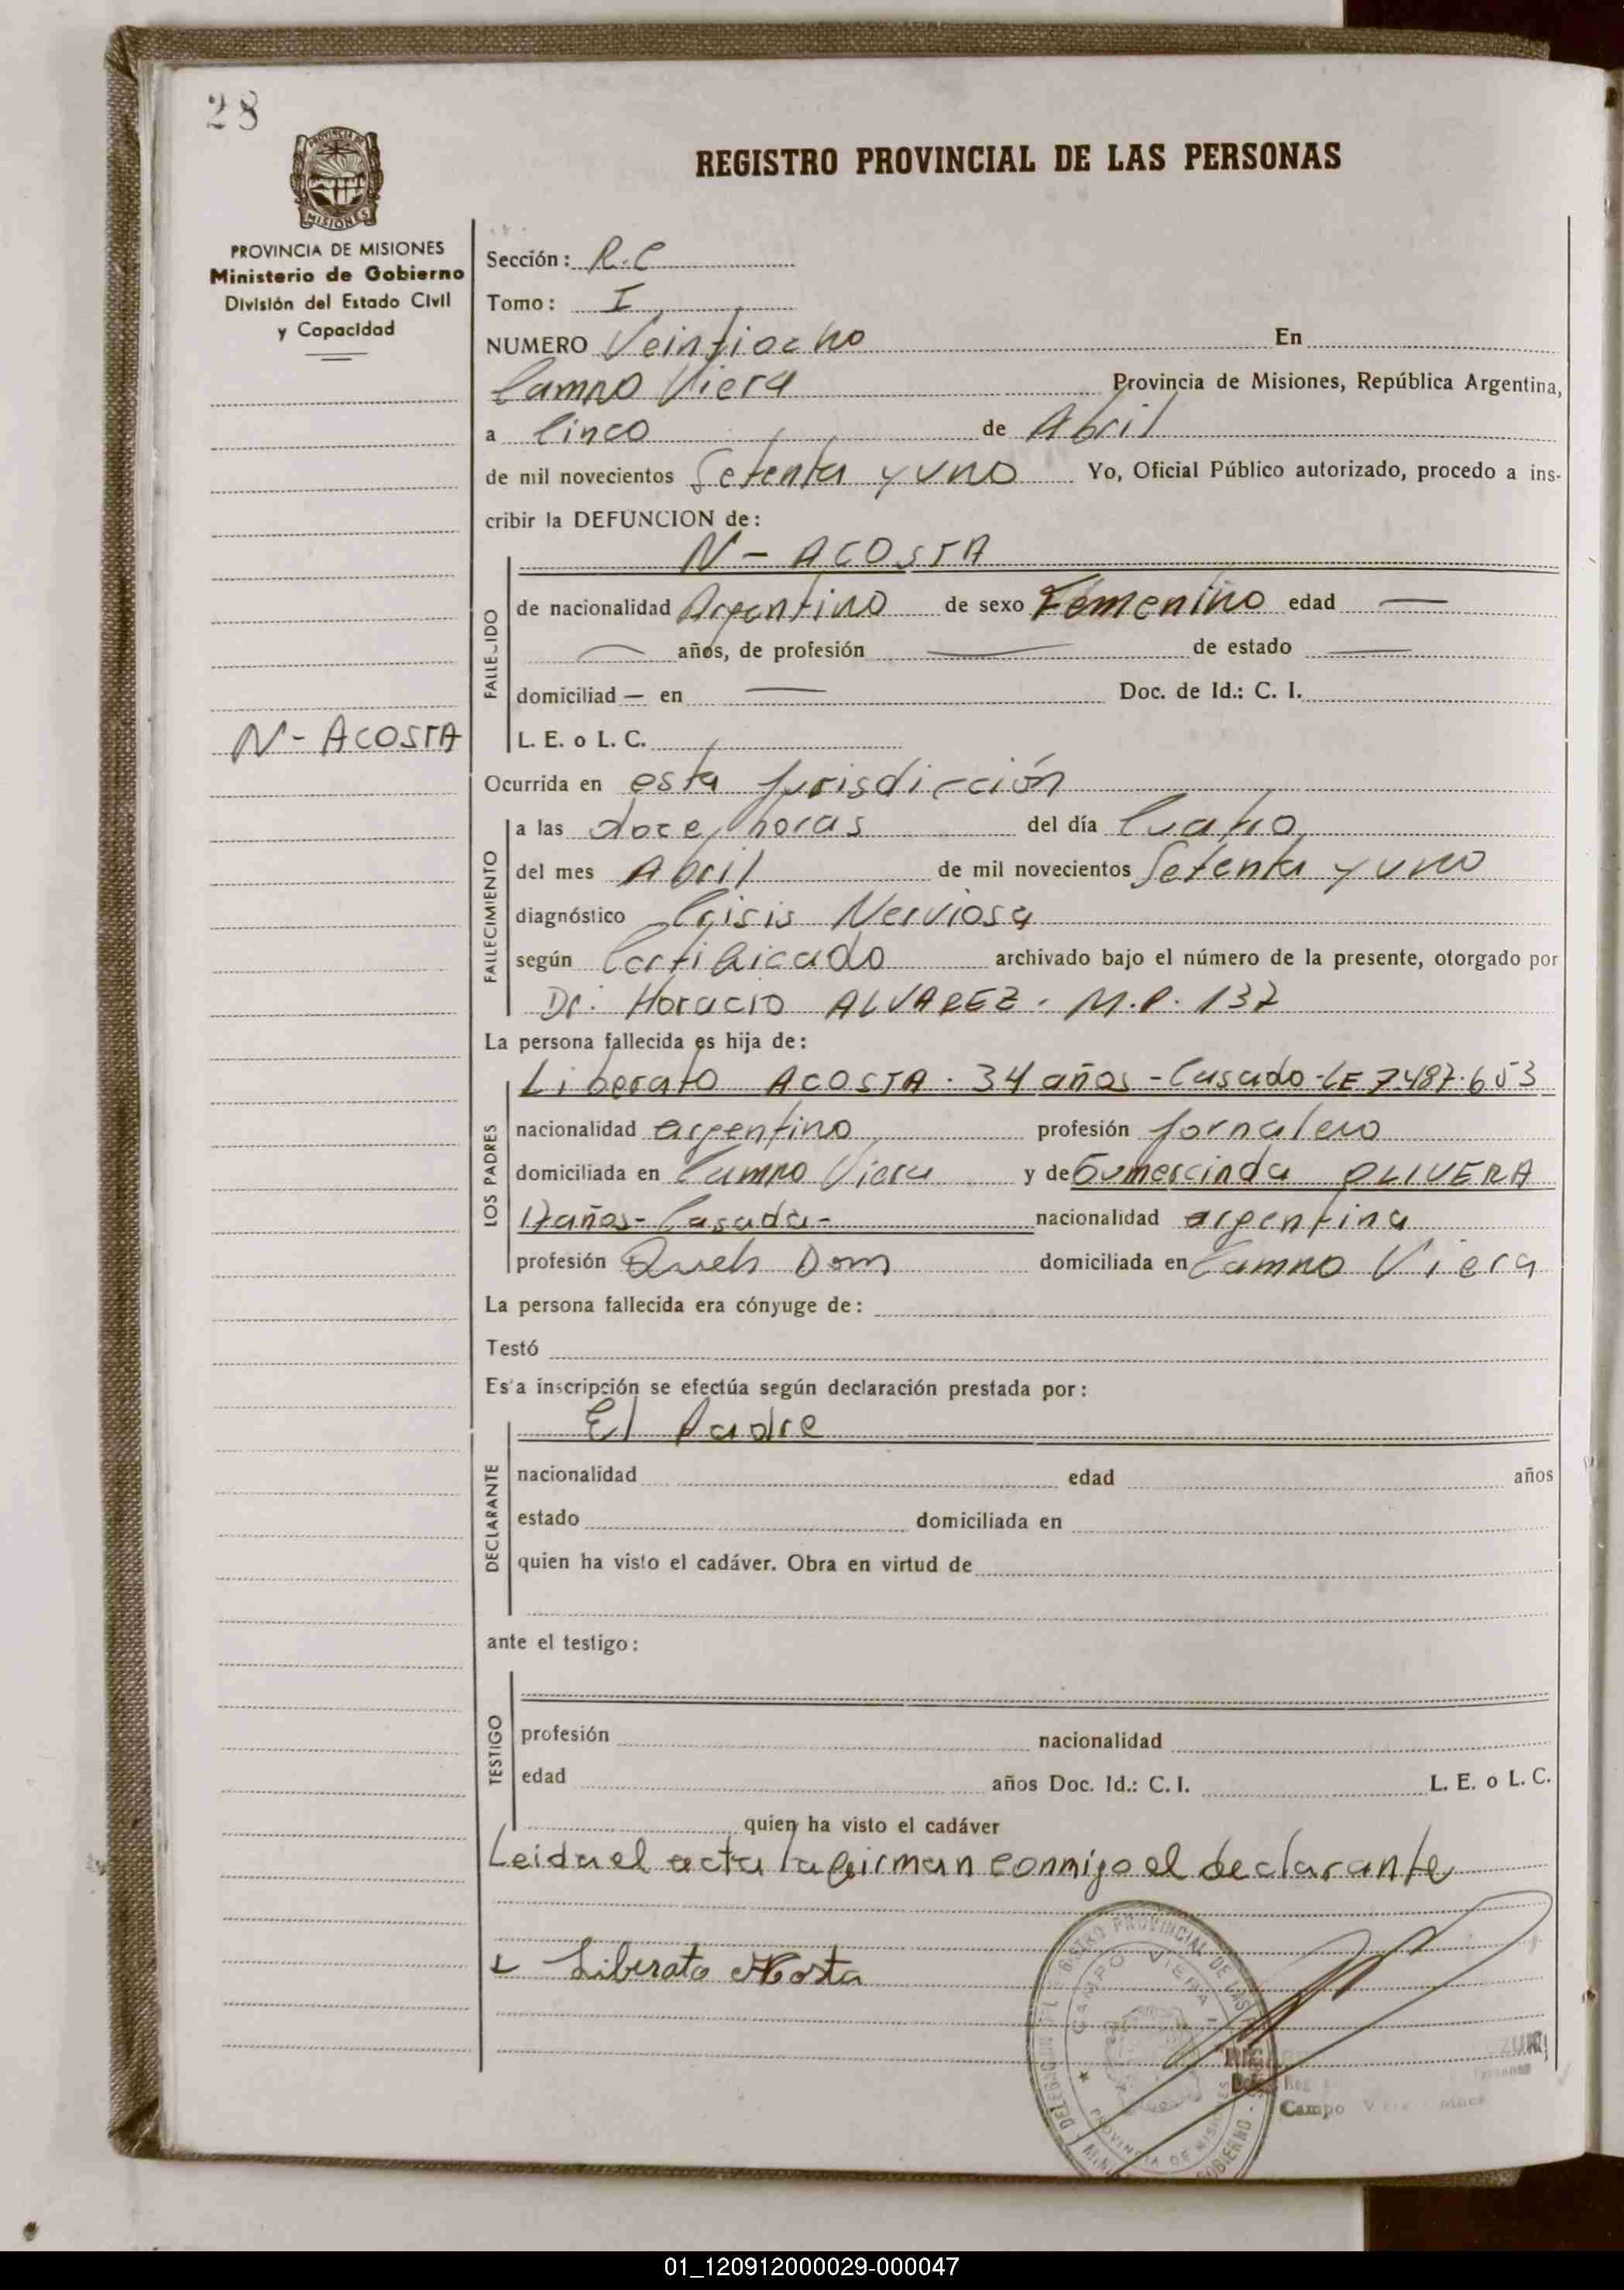 28
PROVINCIA DE
MISIONES
PROVINCIA DE MISIONES
Ministerio de Gobierno
División del Estado Civil
y Capacidad
N - ACOSTA
REGISTRO PROVINCIAL DE LAS PERSONAS
Sección: R.C
Tomo: I
NUMERO Veintiocho En
Campo Viera Provincia de Misiones, República Argentina,
a Cinco de Abril
de mil novecientos Setenta y uno Yo, Oficial Público autorizado, procedo a ins-
cribir la DEFUNCION de:
N - ACOSTA
FALLECIDO
de nacionalidad Argentino de sexo Femenino edad —
— años, de profesión — de estado —
domiciliad — en — Doc. de Id.: C. I.
L. E. o L. C.
Ocurrida en esta jurisdicción
FALLECIMIENTO
a las doce horas del día Cuatro
del mes Abril de mil novecientos Setenta y uno
diagnóstico Crisis Nerviosa
según Certificado archivado bajo el número de la presente, otorgado por
Dr. Horacio ALVAREZ - M.P. 137
La persona fallecida es hija de:
LOS PADRES
Liberato ACOSTA - 34 años - Casado - LE 7.487.653
nacionalidad argentino profesión jornalero
domiciliada en Campo Viera y de Gumercinda OLIVERA
17 años - Casada - nacionalidad argentina
profesión Queh Dom domiciliada en Campo Viera
La persona fallecida era cónyuge de:
Testó
Esta inscripción se efectúa según declaración prestada por:
El Padre
DECLARANTE
nacionalidad edad años
estado domiciliada en
quien ha visto el cadáver. Obra en virtud de
ante el testigo:
TESTIGO
profesión nacionalidad
edad años Doc. Id.: C. I. L. E. o L. C.
quien ha visto el cadáver
Leida el acta la firman conmigo el declarante
Liberato Acosta
REGISTRO PROVINCIAL DE LAS
CAMPO VIERA
PROVINCIA DE MISIONES
Campo Viera
01_120912000029-000047